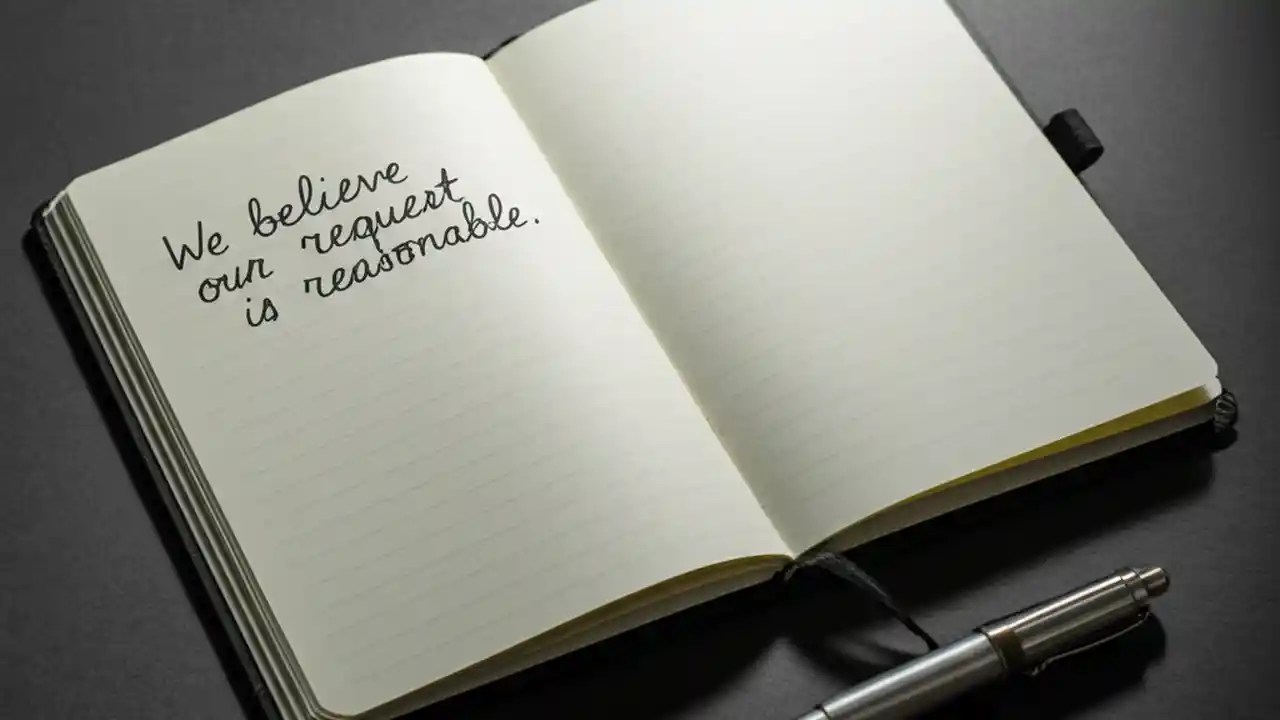 We believe
our request
is reasonable.